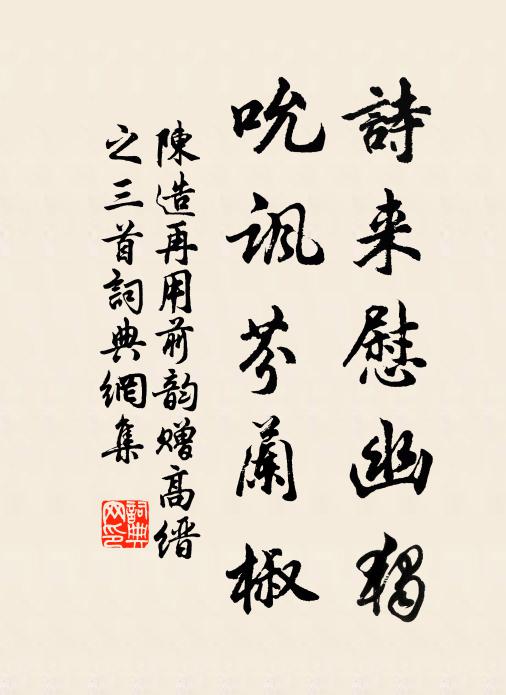 詩来慰幽獨
吮諷芬蘭椒
陳造再用前韵赠高缙
之三首詞典網集
詞典网印